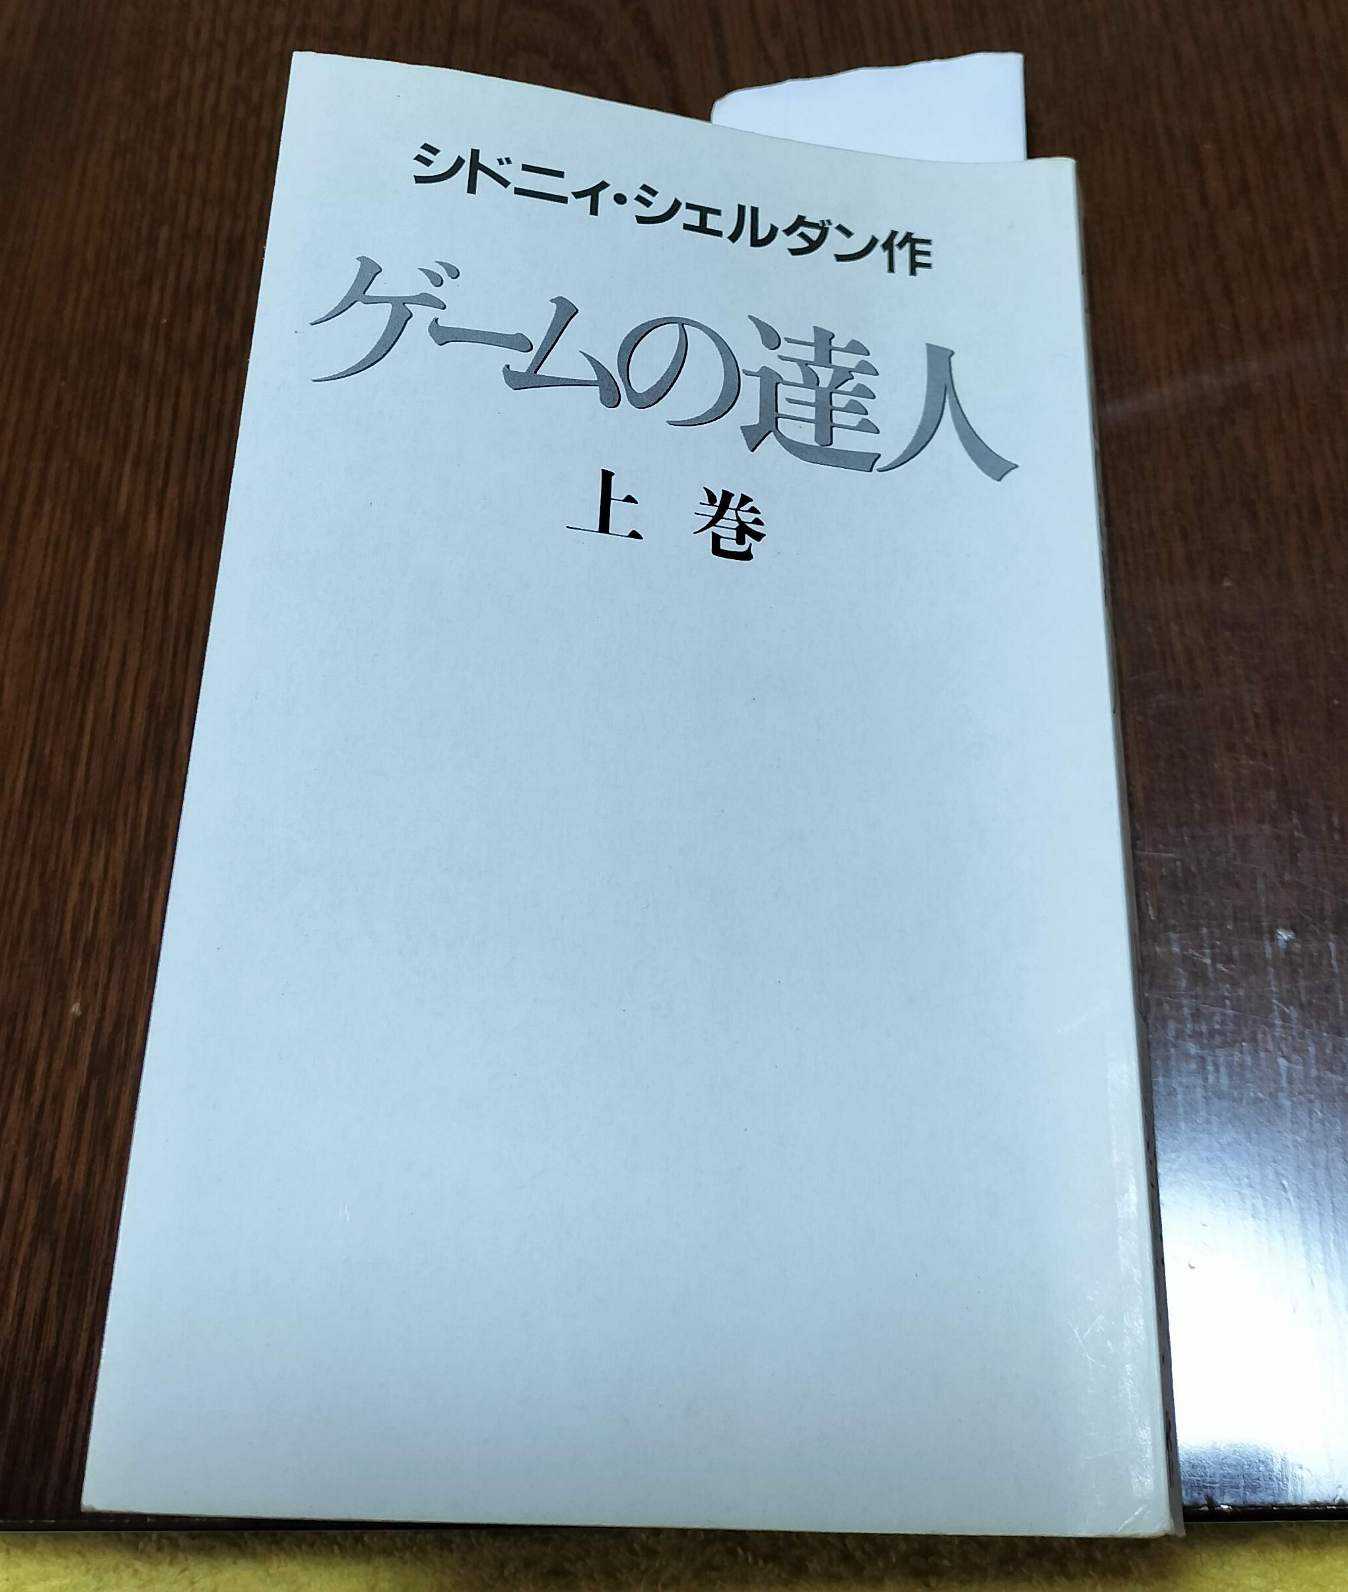 シドニィ・シェルダン作
ゲームの達人
上巻